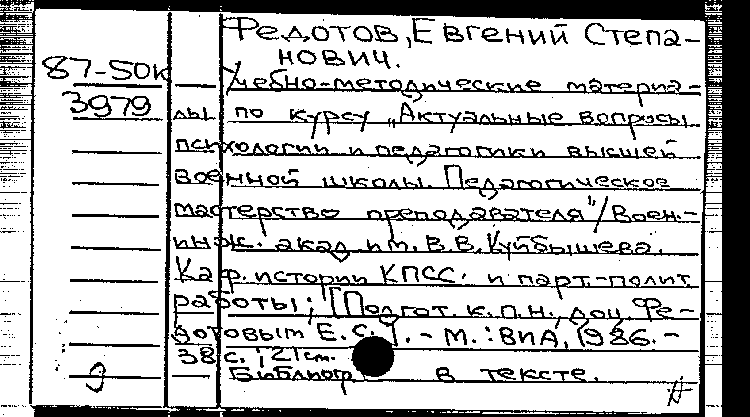 Федотов, Евгений Степа-
нович.
87-50к
3979
Учебно-методические материа-
лы по курсу „Актуальные вопросы
психологии и педагогики высшей
военной школы. Педагогическое
мастерство преподавателя"/Воен.-
инж. акад. им. В.В. Куйбышева.
Каф. истории КПСС. и парт.-полит.
работы; [Подгот. к.п.н., доц. Фе-
дотовым Е.С.]. - М.: ВИА, 1986. -
38 с.; 21 см.
Библиогр. в тексте.
9